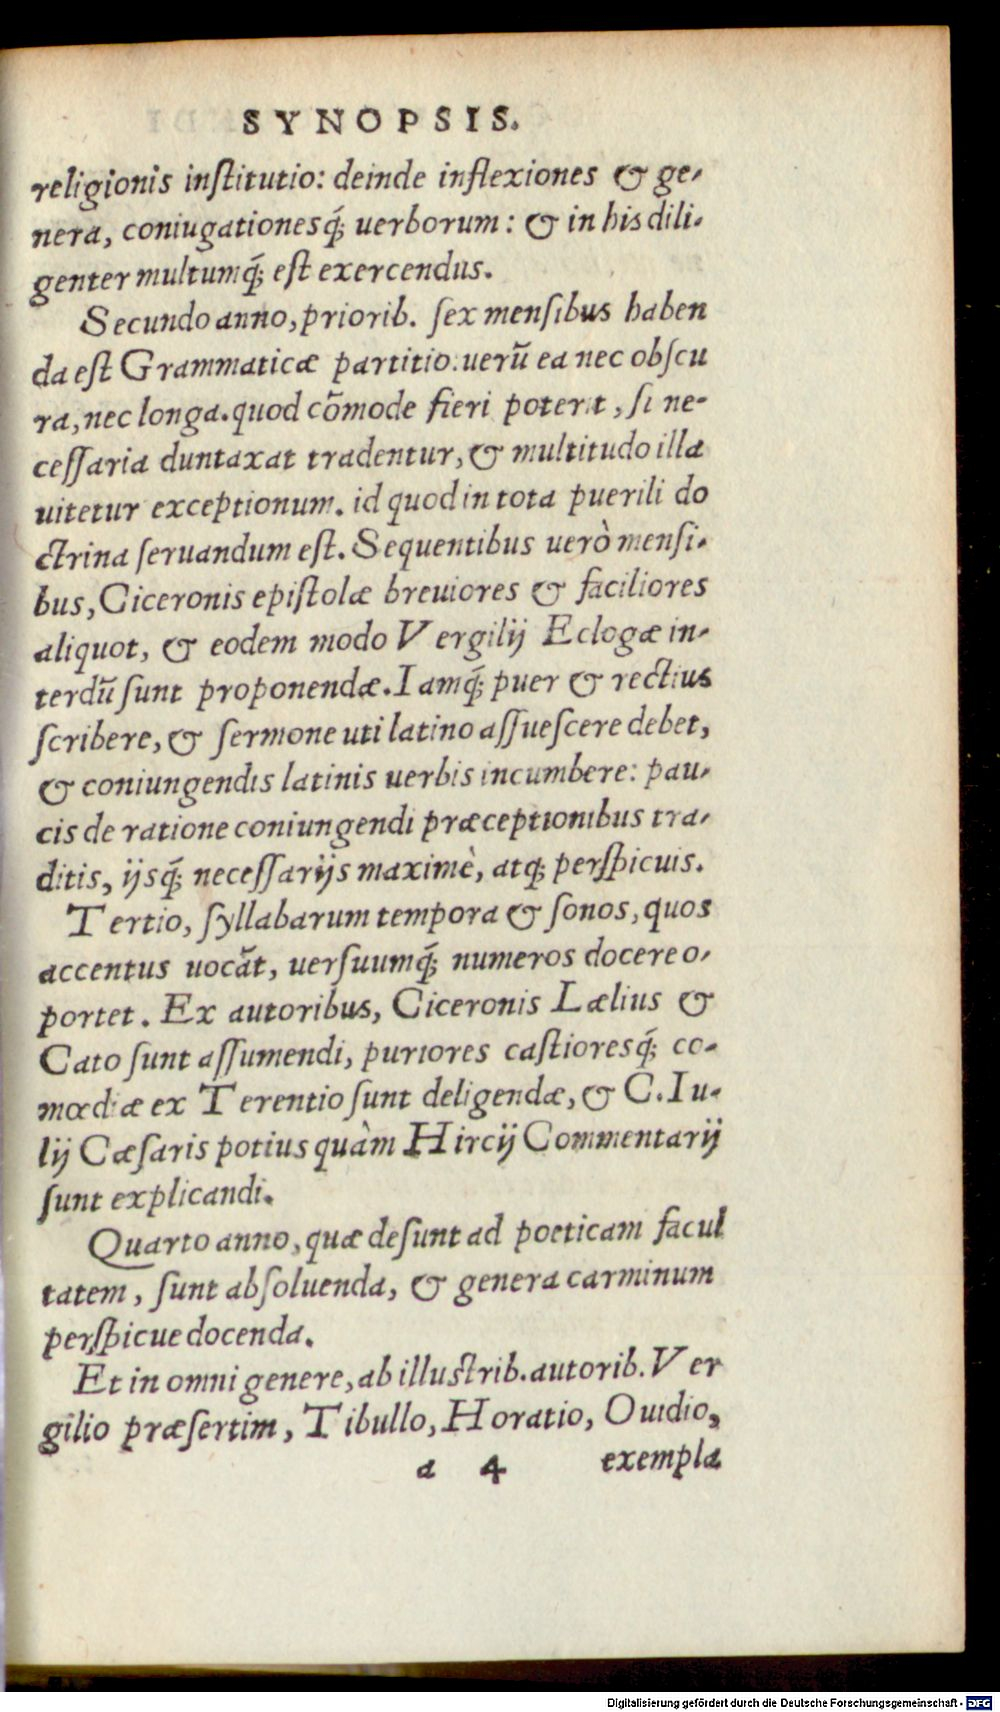 SYNOPSIS.
religionis inſtitutio: deinde inflexiones & ge-
nera, coniugationesq́; uerborum: & in his dili-
genter multumq́; eſt exercendus.
Secundo anno, priorib. ſex menſibus haben
da eſt Grammaticæ partitio. uerū ea nec obſcu
ra, nec longa. quod cōmode fieri poterit, ſi ne-
ceſſaria duntaxat tradentur, & multitudo illa
uitetur exceptionum. id quod in tota puerili do
ctrina ſeruandum eſt. Sequentibus uerò menſi-
bus, Ciceronis epiſtolæ breuiores & faciliores
aliquot, & eodem modo Vergilij Eclogæ in-
terdū ſunt proponendæ. Iamq́; puer & rectius
ſcribere, & ſermone uti latino aſſueſcere debet,
& coniungendis latinis uerbis incumbere: pau-
cis de ratione coniungendi præceptionibus tra-
ditis, ijsq́; neceſſarijs maximè, atq; perſpicuis.
Tertio, ſyllabarum tempora & ſonos, quos
accentus uocāt, uerſuumq́; numeros docere o-
portet. Ex autoribus, Ciceronis Lælius &
Cato ſunt aſſumendi, puriores caſtioresq́; co-
mœdiæ ex Terentio ſunt deligendæ, & C. Iu-
lij Cæſaris potius quàm Hircij Commentarij
ſunt explicandi.
Quarto anno, quæ deſunt ad poeticam facul
tatem, ſunt abſoluenda, & genera carminum
perſpicue docenda.
Et in omni genere, ab illuſtrib. autorib. Ver
gilio præſertim, Tibullo, Horatio, Ouidio,
a 4 exempla
Digitalisierung gefördert durch die Deutsche Forschungsgemeinschaft - DFG